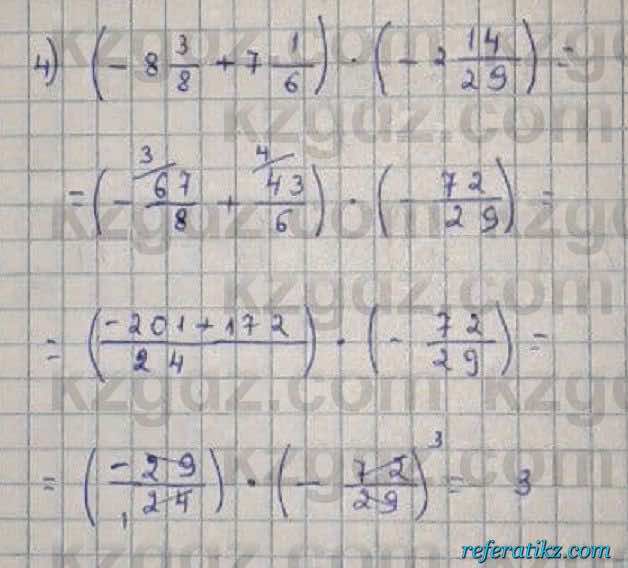 4) (- 8 3/8 + 7 1/6) · (- 2 14/29) =
= (- 67/8 ³⁄ + 43/6 ⁴⁄) · (- 72/29) =
= ((-201 + 172)/24) · (- 72/29) =
= (-29/24 ₁) · (- 72/29)³ = 3
kzgdz.com
referatikz.com